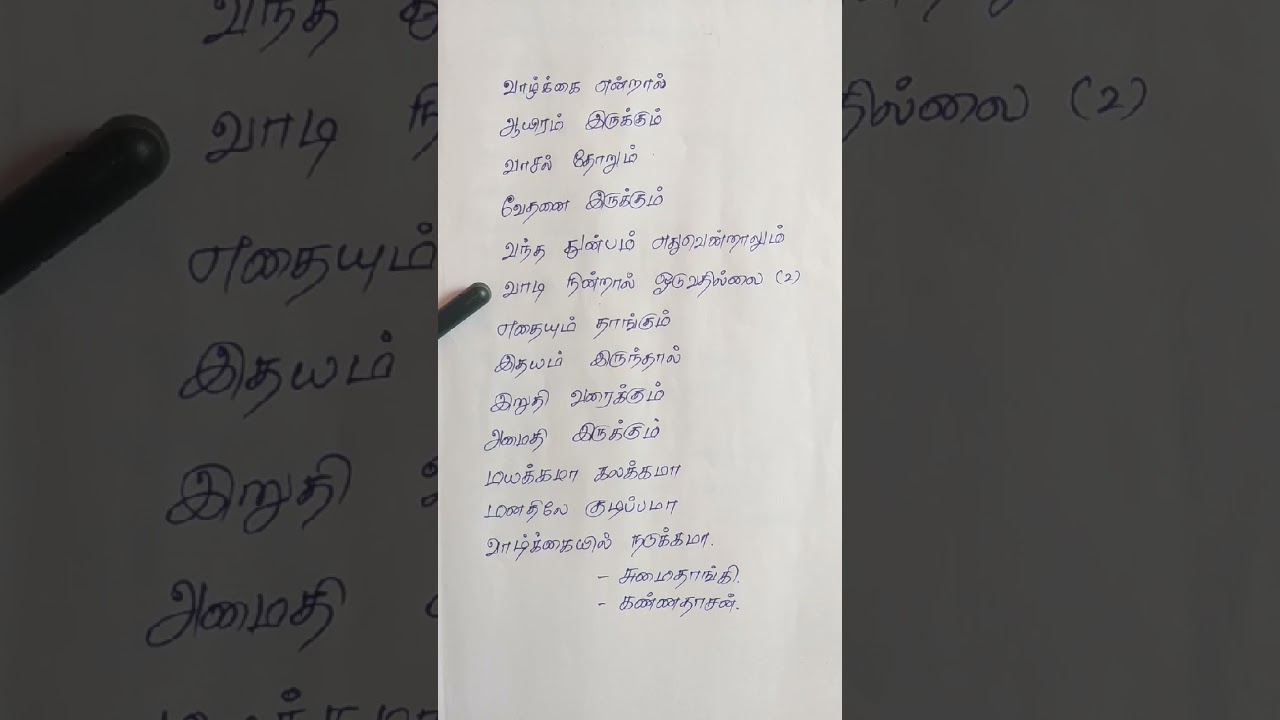 வாழ்க்கை என்றால்
ஆயிரம் இருக்கும்
வாசல் தோறும்
வேதனை இருக்கும்
வந்த துன்பம் எதுவென்றாலும்
வாடி நின்றால் ஓடுவதில்லை (2)
எதையும் தாங்கும்
இதயம் இருந்தால்
இறுதி வரைக்கும்
அமைதி இருக்கும்
மயக்கமா கலக்கமா
மனதிலே குழப்பமா
வாழ்க்கையில் நடுக்கமா.
- சுமைதாங்கி.
- கண்ணதாசன்.